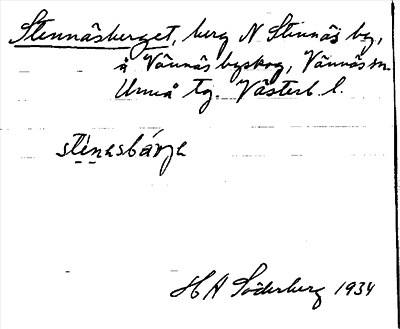 Stennäsberget, berg N Stennäs by,
å Vännäs byskog, Vännäs sn.
Umeå tg. Västerb. l.
stenasbárje
H A Söderberg 1934